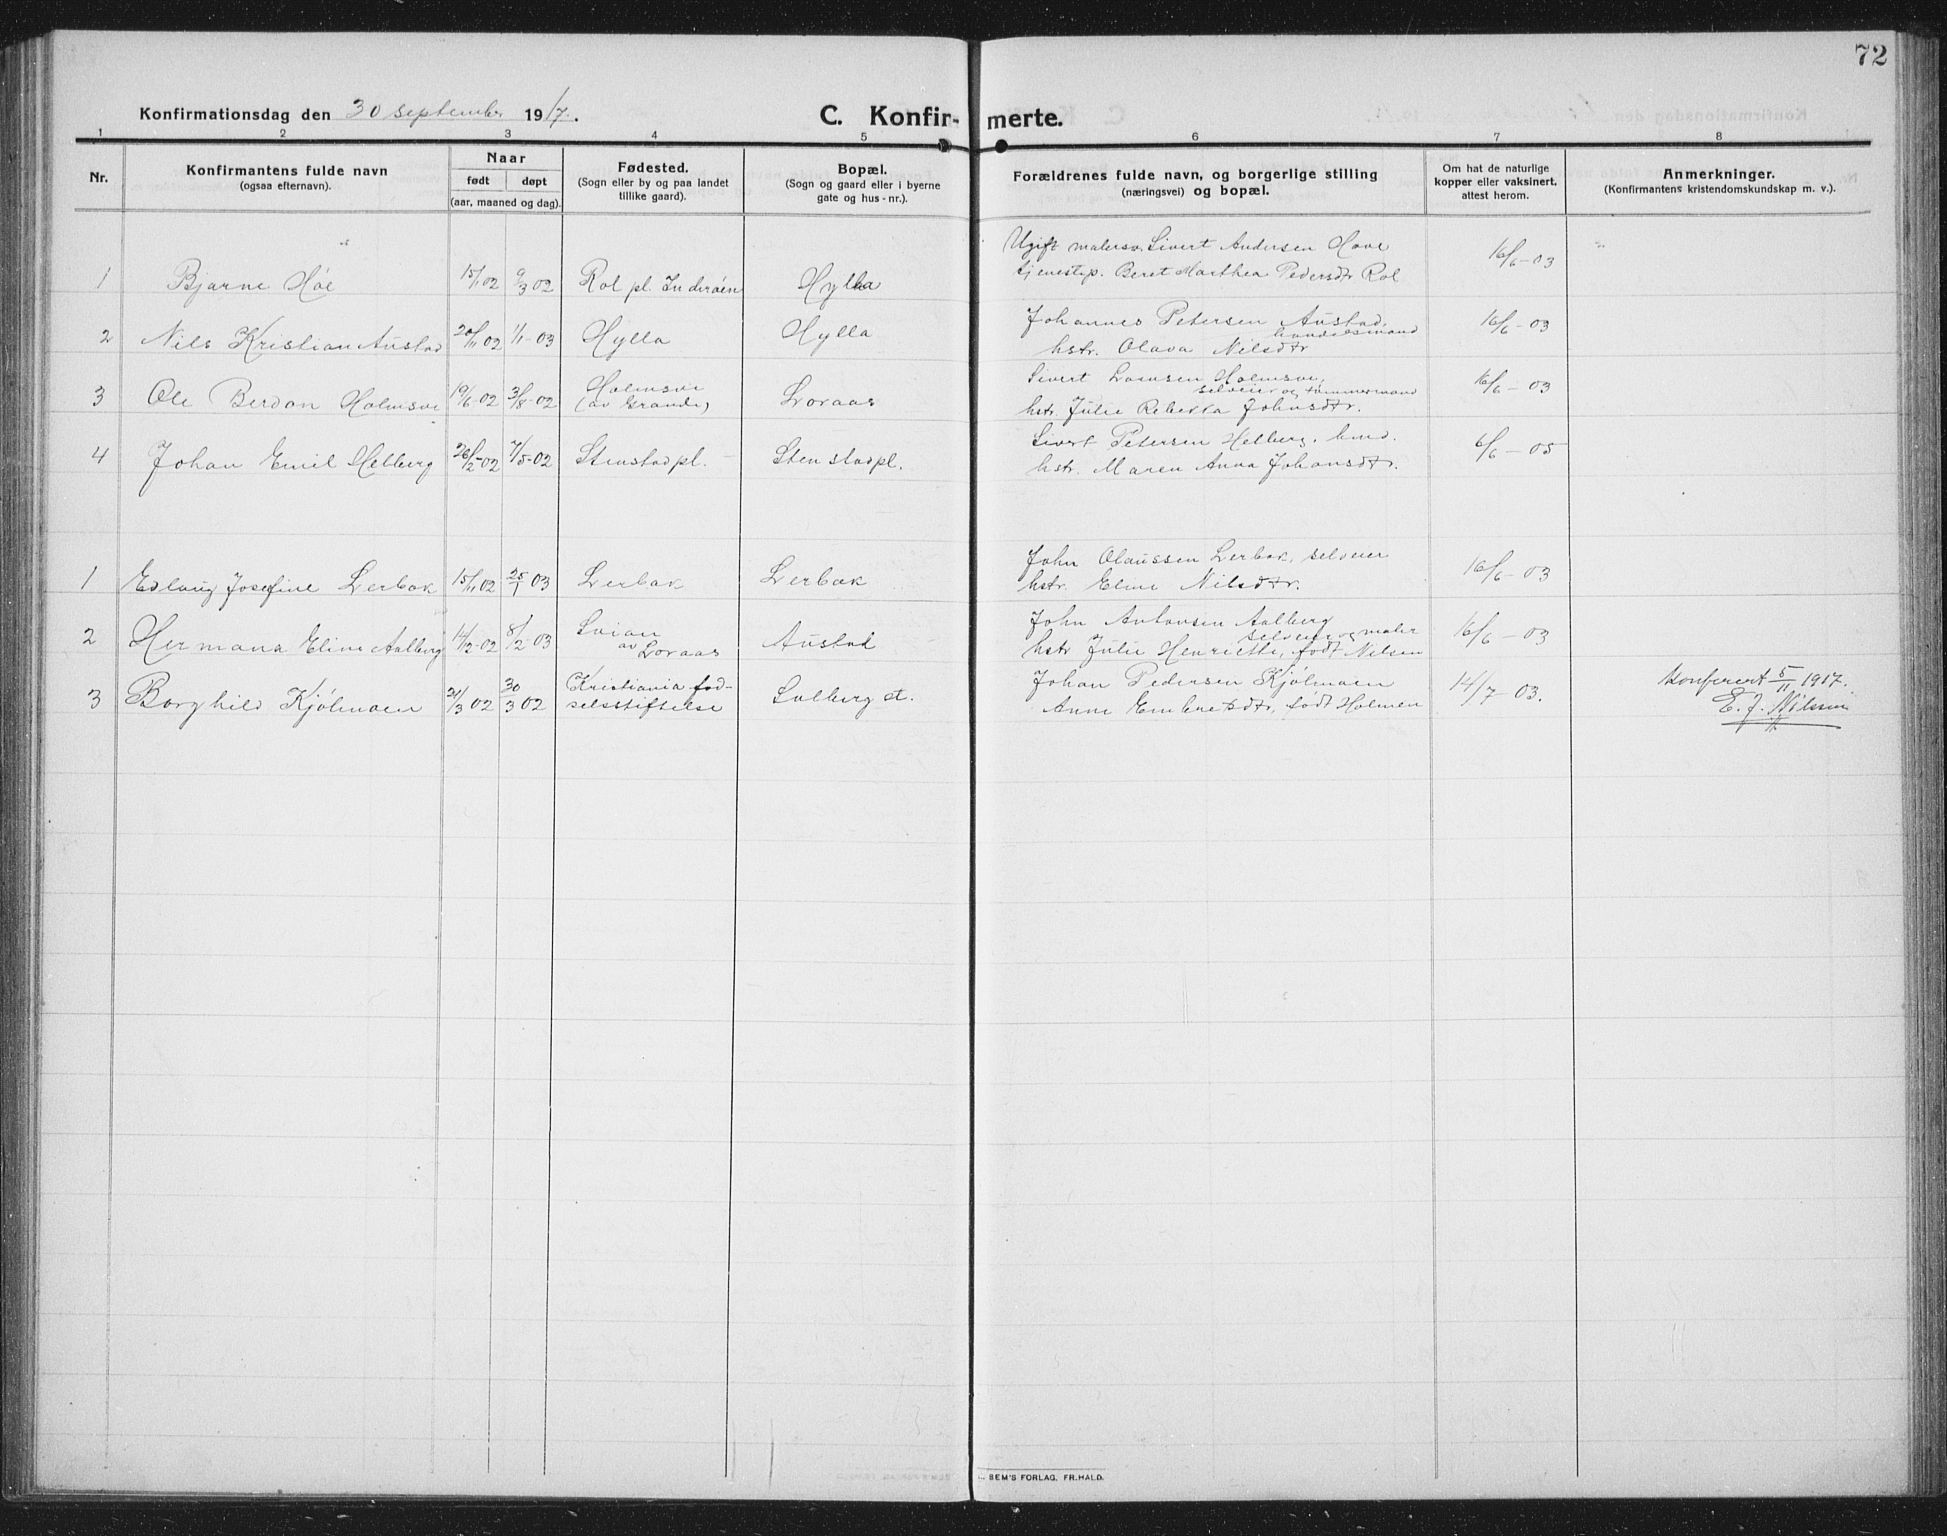 72
Konfirmationsdag den 30 september 1917.
C. Konfir- merte.
1 2 3 4 5 6 7 8
Nr.
Konfirmantens fulde navn
(ogsaa efternavn).
Naar
født døpt
(aar, maaned og dag).
Fødested.
(Sogn eller by og paa landet
tillike gaard).
Bopæl.
(Sogn og gaard eller i byerne
gate og hus-nr.).
Forældrenes fulde navn, og borgerlige stilling
(næringsvei) og bopæl.
Om hat de naturlige
kopper eller vaksinert,
attest herom.
Anmerkninger.
(Konfirmantens kristendomskundskap m. v.).
Ugift malersv. Sivert Andersen Hove
1 Bjarne Høe 15/1 02 9/3 02 Rol pl. Inderøen Hylla tjenestep. Beret Marthea Pedersdtr Rol 16/6-03
2 Nils Kristian Austad 20/11 02 1/1-03 Hylla Hylla Johannes Petersen Austad, handelsmand 16/6-03
hstr. Olava Nilsdtr
3 Ole Berdon Holmsve 19/6 02 3/8-02 Holmsve (av Grande) Loraas Sivert Holmsve, selveier og tømmermand 16/6-03
hstr. Julie Rebekka Johnsdtr.
4 Johan Emil Helberg 26/2-02 7/5-02 Stenstadpl. Stenstadpl. Sivert Petersen Helberg, hmd. 6/6-05
hstr. Maren Anna Johansdtr.
1 Edlaug Josefine Lerbak 15/11 02 25/1 03 Lerbak Lerbak John Olaussen Lerbak, selveier 16/6-03
hstr. Eline Nilsdtr.
2 Hermana Eline Aalberg 14/12-02 8/2-03 Svian av Loraas Austad John Antonsen Aalberg selveier og maler 16/6-03
hstr Julie Henriette, født Nilsen
3 Borghild Kjølmoen 21/3 02 30/3 02 Kristiania fød- Solberg et. Johan Pedersen Kjølmoen 14/7-03. Konferert 5/11 1917.
selsstiftelse Anne Embretsdtr, født Holmen E. J. Nilssen
BEM'S FORLAG. FR. HALD.